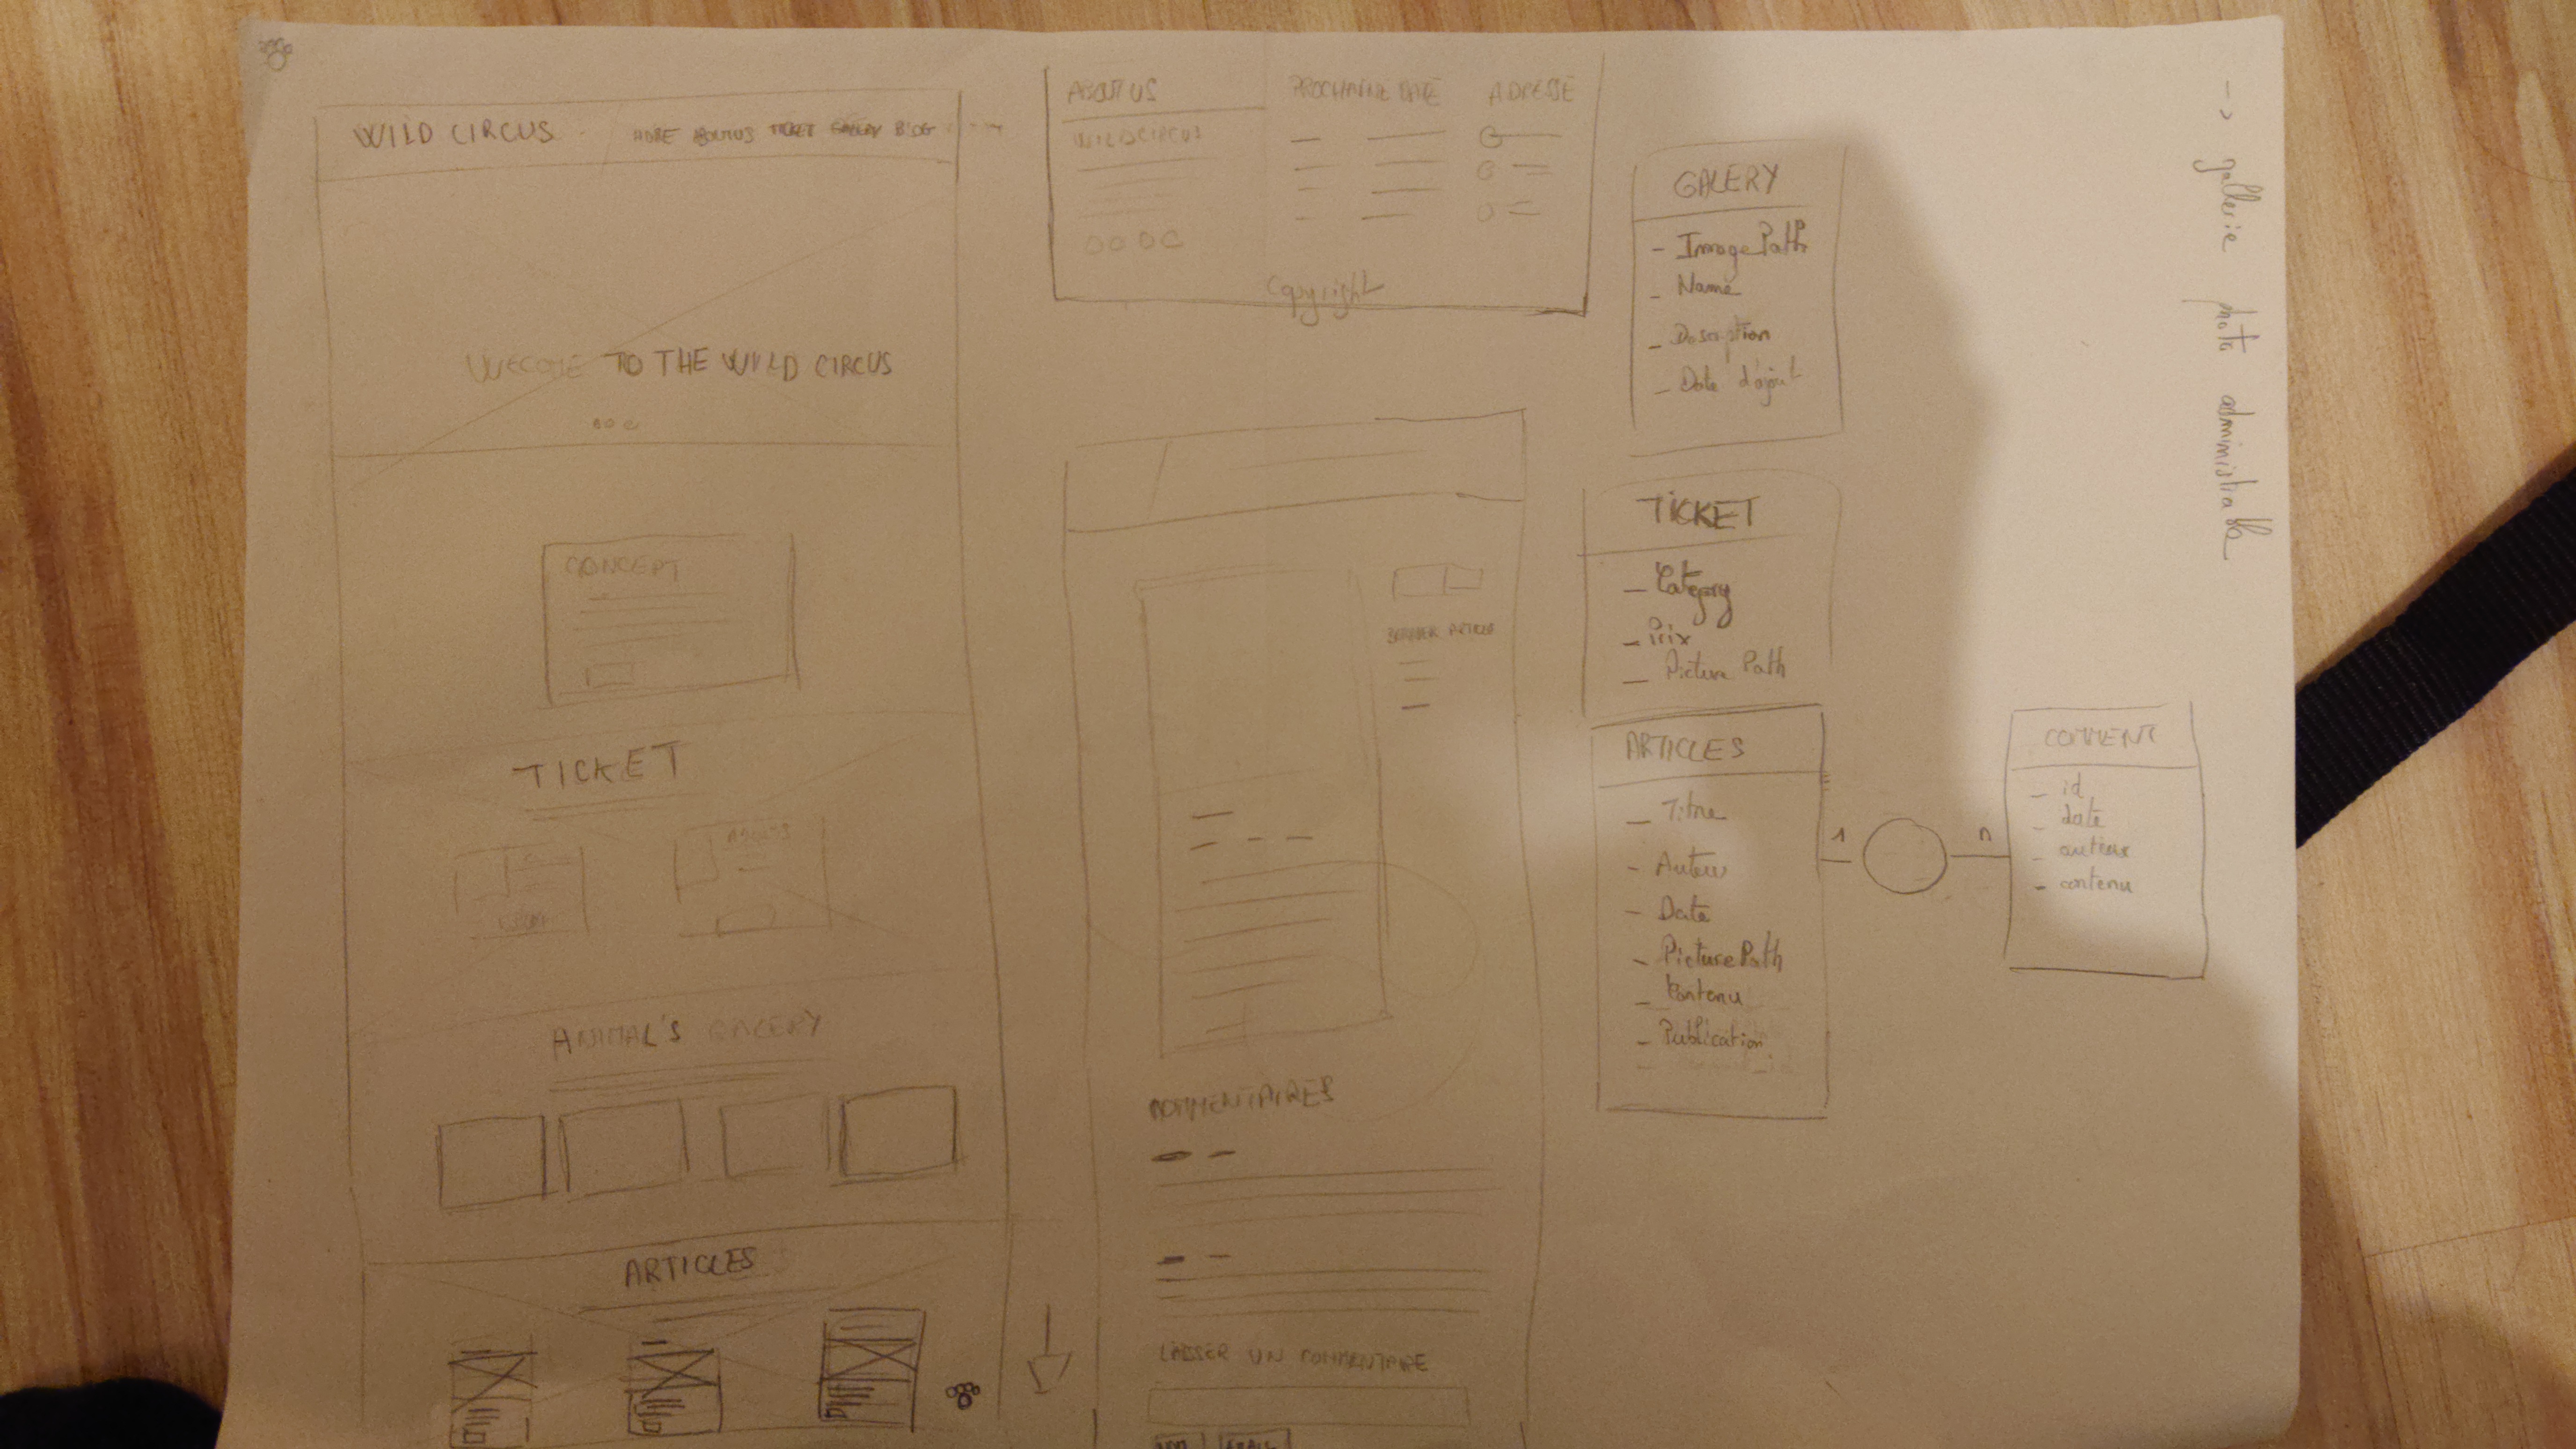 WILD CIRCUS
HOME ABOUT US TICKET GALERY BLOG
TO THE WILD CIRCUS
CONCEPT
TICKET
ADULTS
ANIMAL'S GALERY
ARTICLES
ABOUT US
WILD CIRCUS
PROCHAINE DATE
ADRESSE
Copyright
DERNIER ARTICLE
COMMENTAIRES
LAISSER UN COMMENTAIRE
EMAIL
GALERY
- Image Path
- Name
- Description
- Date d'ajout
TICKET
- Category
- Prix
- Picture Path
ARTICLES
- Titre
- Auteur
- Date
- Picture Path
- Contenu
- Publication
1
n
COMMENT
- id
- date
- auteur
- contenu
-> gallerie photo administrable